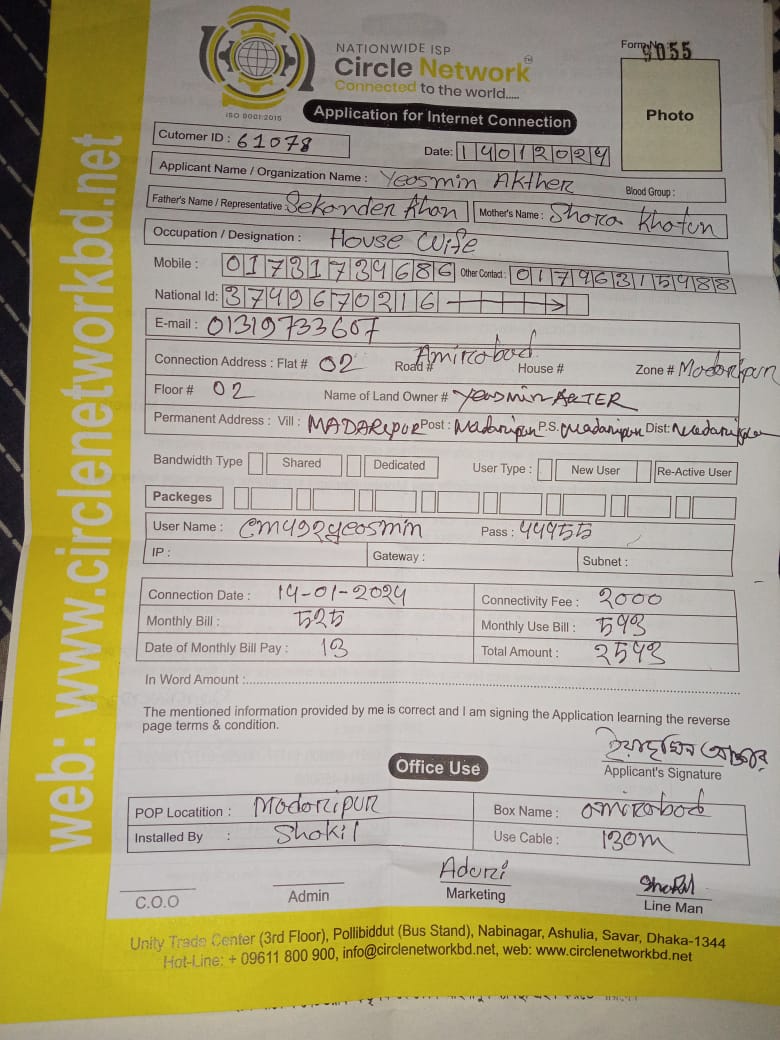 NATIONWIDE ISP
Circle Network
Connected to the world.....
ISO 9001:2015
Form No. 9055
Application for Internet Connection
Photo
Cutomer ID : 61078
Date: 14012024
Applicant Name / Organization Name : Yeosmin Akther Blood Group :
Father's Name / Representative : Sekonder khan Mother's Name : Shora khotun
Occupation / Designation : House wife
Mobile : 01731734686 Other Contact : 01796315488
National Id: 3749670216
E-mail : 01319733607
Connection Address : Flat # 02 Road # Amirabad House # Zone # Modaripur
Floor # 02 Name of Land Owner # Yeasmin AKTER
Permanent Address : Vill : MADARIPUR Post : Madaripur P.S. Madaripur Dist: Madaripur
Bandwidth Type Shared Dedicated User Type : New User Re-Active User
Packeges
User Name : cm492yeosmin Pass : 44455
IP : Gateway : Subnet :
Connection Date : 14-01-2024 Connectivity Fee : 2000
Monthly Bill : 525 Monthly Use Bill : 543
Date of Monthly Bill Pay : 13 Total Amount : 2543
In Word Amount :
The mentioned information provided by me is correct and I am signing the Application learning the reverse
page terms & condition.
ইয়াছমিন আক্তার
Applicant's Signature
Office Use
POP Locatition : Modaripur Box Name : omirabod
Installed By : Shokil Use Cable : 130m
C.O.O Admin Aduri Marketing Shokil Line Man
Unity Trade Center (3rd Floor), Pollibiddut (Bus Stand), Nabinagar, Ashulia, Savar, Dhaka-1344
Hot-Line: + 09611 800 900, info@circlenetworkbd.net, web: www.circlenetworkbd.net
web: www.circlenetworkbd.net